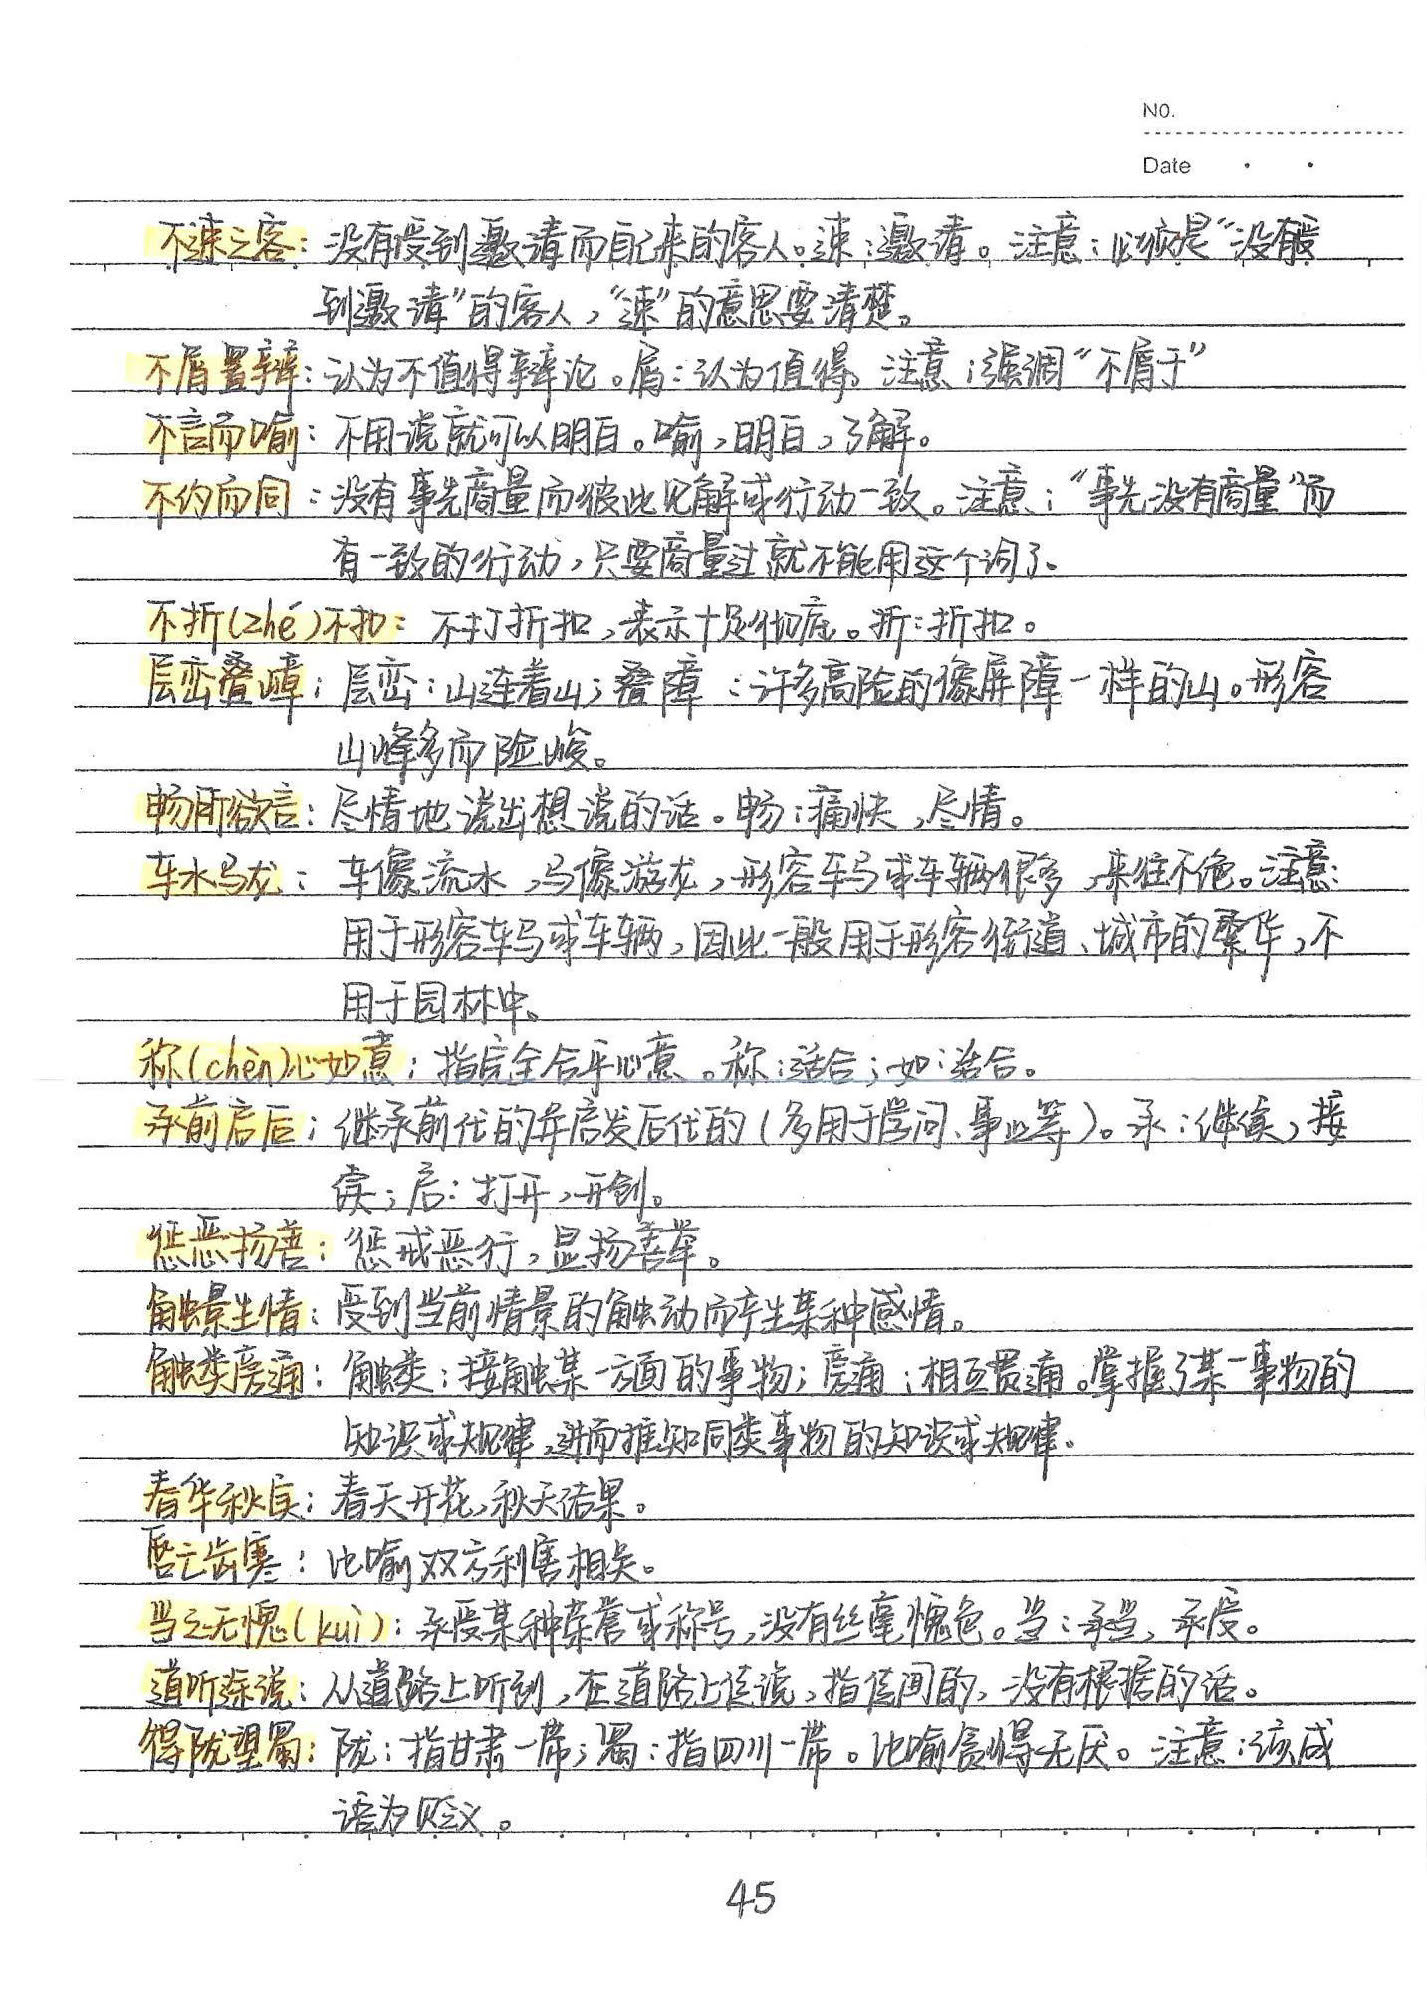 NO.
Date
不速之客：没有受到邀请而自己来的客人。速：邀请。注意：必须是“没有受
到邀请”的客人，“速”的意思要清楚。
不屑置辩：认为不值得辩论。屑：认为值得。注意：强调“不屑于”
不言而喻：不用说就可以明白。喻，明白，了解。
不约而同：没有事先商量而彼此见解或行动一致。注意：“事先没有商量”而
有一致的行动，只要商量过就不能用这个词了。
不折(zhé)不扣：不打折扣，表示十足彻底。折：折扣。
层峦叠嶂：层峦：山连着山；叠障：许多高险的像屏障一样的山。形容
山峰多而险峻。
畅所欲言：尽情地说出想说的话。畅：痛快，尽情。
车水马龙：车像流水，马像游龙，形容车马或车辆很多，来往不绝。注意：
用于形容车马或车辆，因此一般用于形容街道、城市的繁华，不
用于园林中。
称(chèn)心如意：指完全合乎心意。称：适合；如：适合。
承前启后：继承前代的并启发后代的(多用于学问、事业等)。承：继续，接
续；启：打开，开创。
惩恶扬善：惩戒恶行，显扬善举。
触景生情：受到当前情景的触动而产生某种感情。
触类旁通：触类：接触某一方面的事物；旁通：相互贯通。掌握了某一事物的
知识或规律，进而推知同类事物的知识或规律。
春华秋实：春天开花，秋天结果。
唇亡齿寒：比喻双方利害相关。
当之无愧(kuì)：承受某种荣誉或称号，没有丝毫愧色。当：承当，承受。
道听途说：从道路上听到，在道路上传说，指传闻的，没有根据的话。
得陇望蜀：陇：指甘肃一带；蜀：指四川一带。比喻贪得无厌。注意：该成
语为贬义。
45